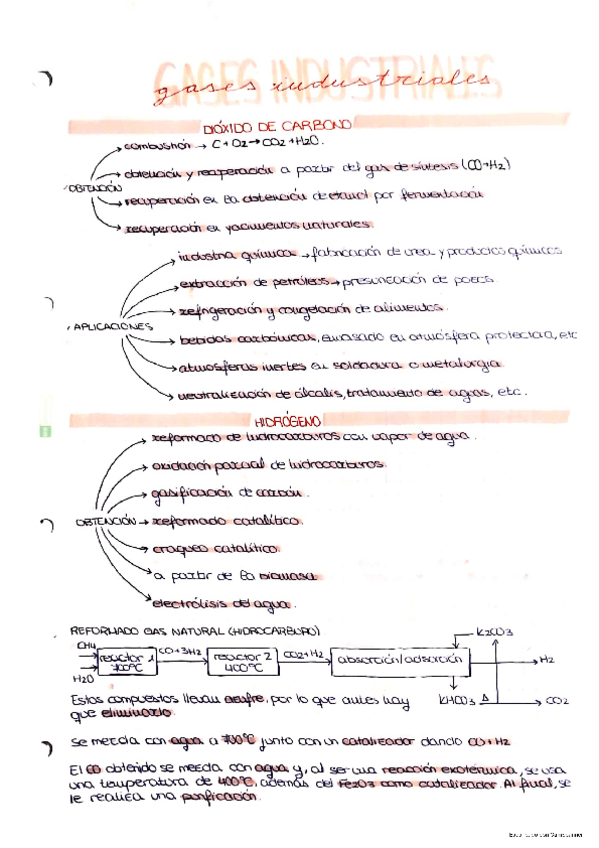 GASES INDUSTRIALES
gases industriales
DIÓXIDO DE CARBONO
OBTENCIÓN
combustión → C + O2 → CO2 + H2O.
obtención y recuperación a partir del gas de síntesis (CO+H2)
recuperación en la obtención de etanol por fermentación
recuperación en yacimientos naturales.
APLICACIONES
industria química → fabricación de urea y productos químicos
extracción de petróleos → presurización de pozos
refrigeración y congelación de alimentos.
bebidas carbónicas, envasado en atmósfera protectora, etc
atmósferas inertes en soldadura o metalurgia
neutralización de álcalis, tratamiento de aguas, etc.
HIDRÓGENO
OBTENCIÓN
reformado de hidrocarburos con vapor de agua.
oxidación parcial de hidrocarburos
gasificación de carbón.
reformado catalítico.
craqueo catalítico.
a partir de la biomasa
electrólisis del agua.
REFORMADO GAS NATURAL (HIDROCARBURO)
CH4
H2O
reactor 1
700ºC
CO+3H2
reactor 2
400ºC
CO2+H2
absorción/adsorción
K2CO3
H2
KHCO3 Δ
CO2
Estos compuestos llevan azufre, por lo que antes hay
que eliminarlo.
Se mezcla con agua a 700ºC junto con un catalizador dando CO+H2
El CO obtenido se mezcla con agua y, al ser una reacción exotérmica, se usa
una temperatura de 400ºC, además del Fe2O3 como catalizador. Al final, se
le realiza una purificación.